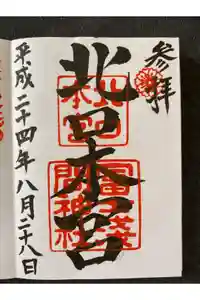 参拝
北口本宮
北口
本宮
冨士浅
間神社
平成二十四年八月二十八日